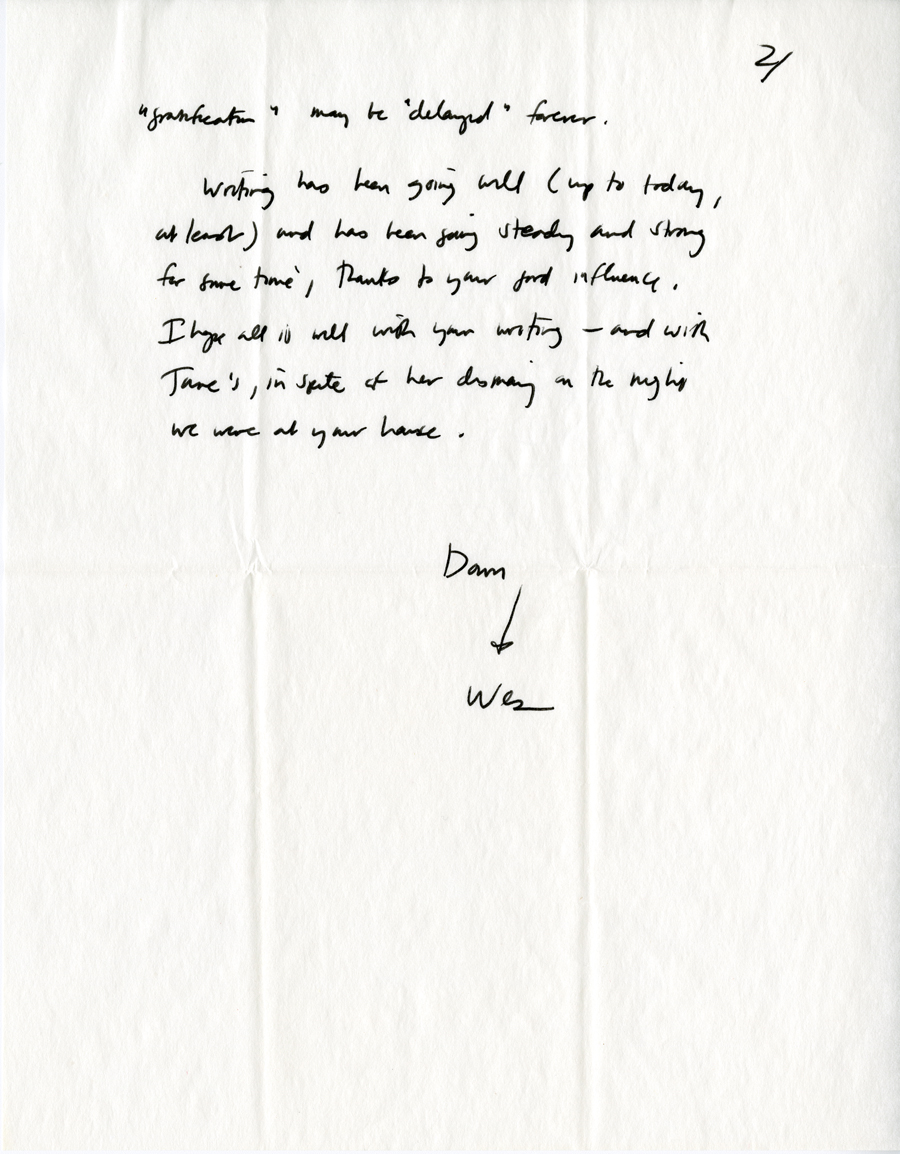 2/
"gratification" may be "delayed" forever.
Writing has been going well (up to today,
at least) and has been going steady and strong
for some time, thanks to your good influence.
I hope all is well with your writing — and with
Jane's, in spite of her dismay on the night
we were at your house.
Dawn
Wes